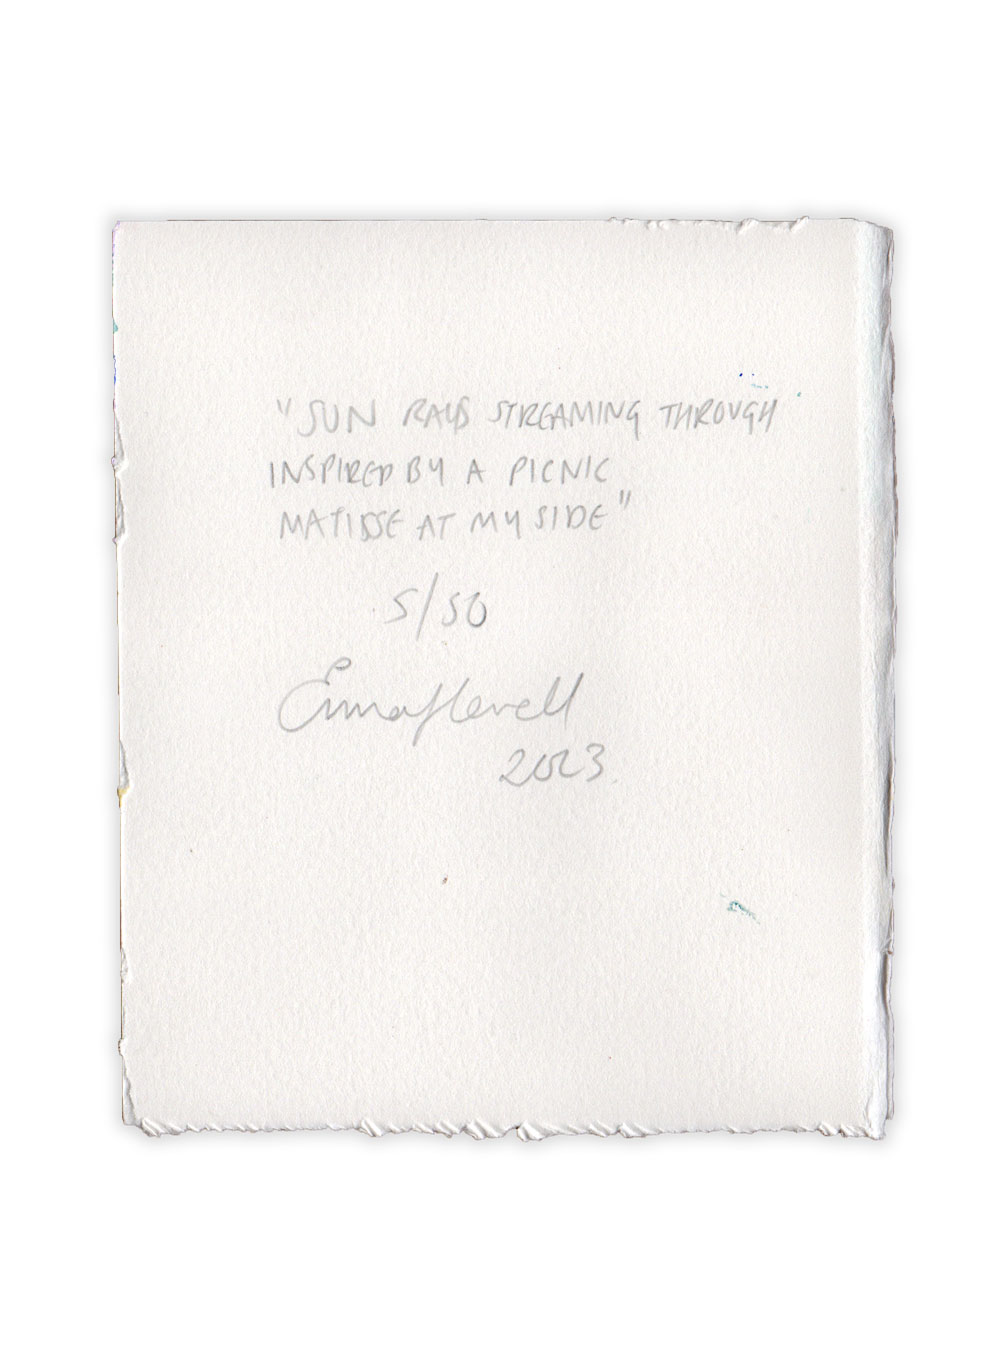 "SUN RAYS STREAMING THROUGH
INSPIRED BY A PICNIC
MATISSE AT MY SIDE"
5/50
Emma Levell
2023